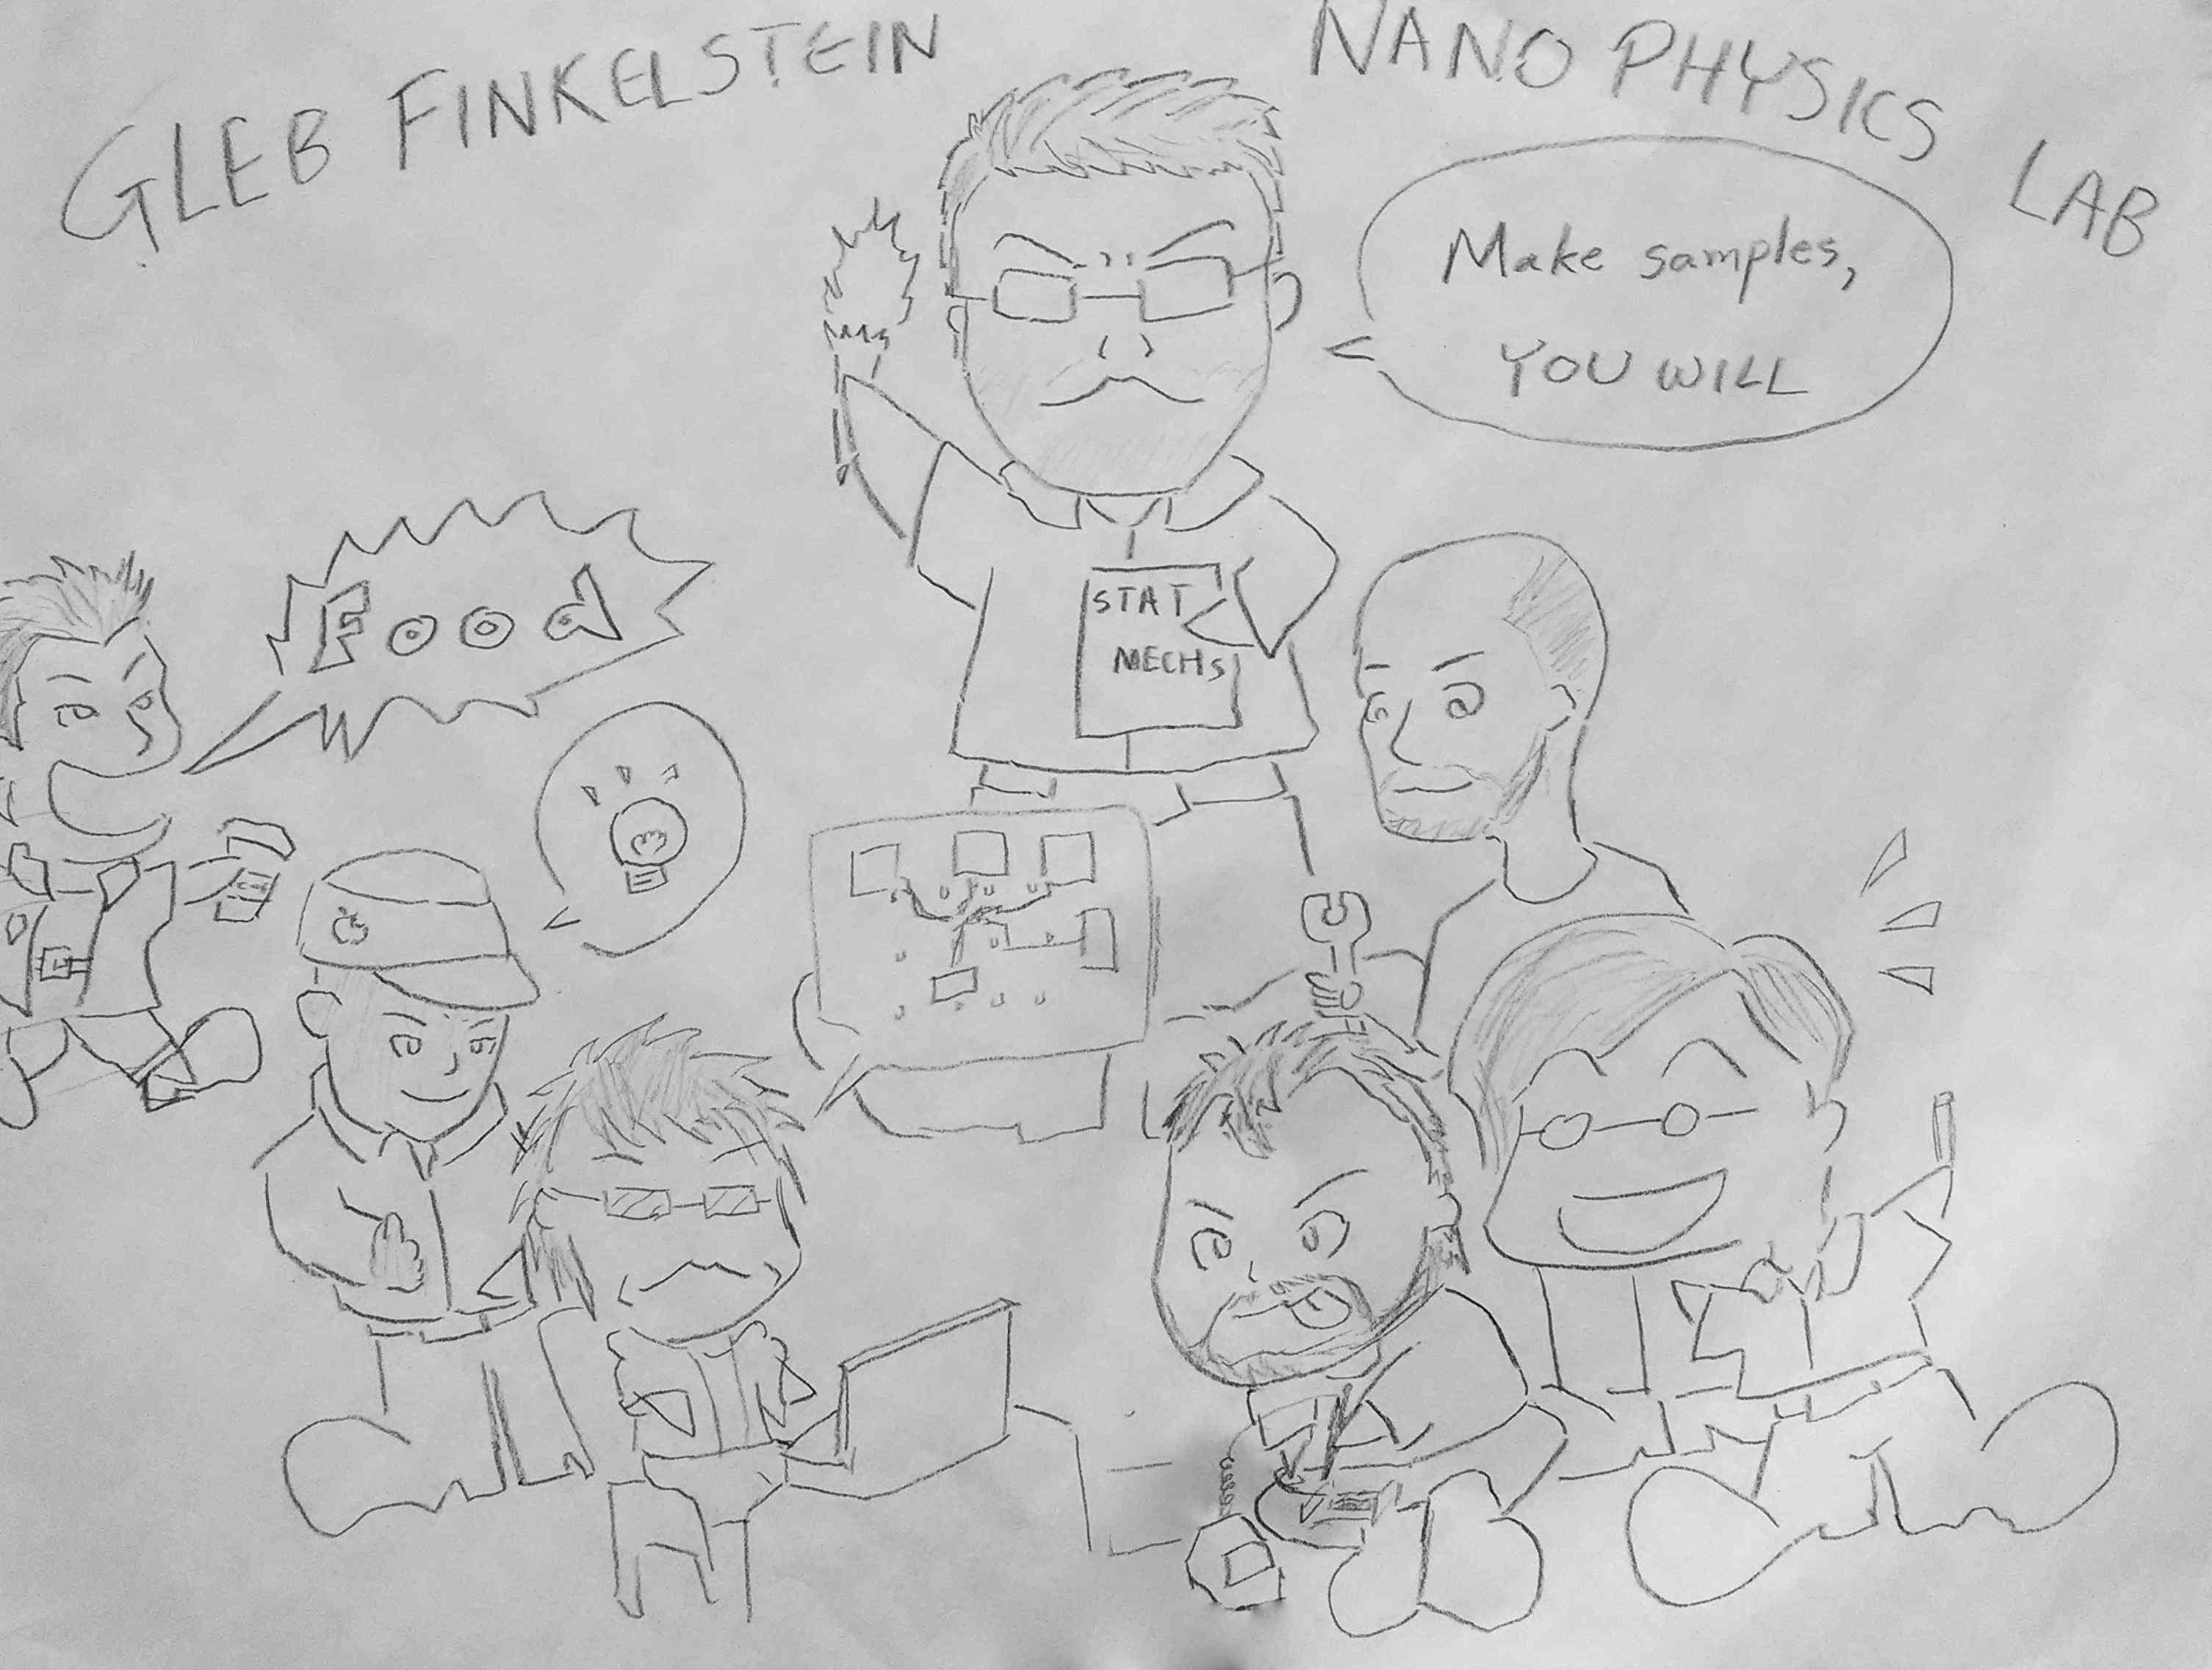 GLEB FINKELSTEIN NANO PHYSICS LAB
Make samples,
YOU WILL
Food
STAT
MECHS